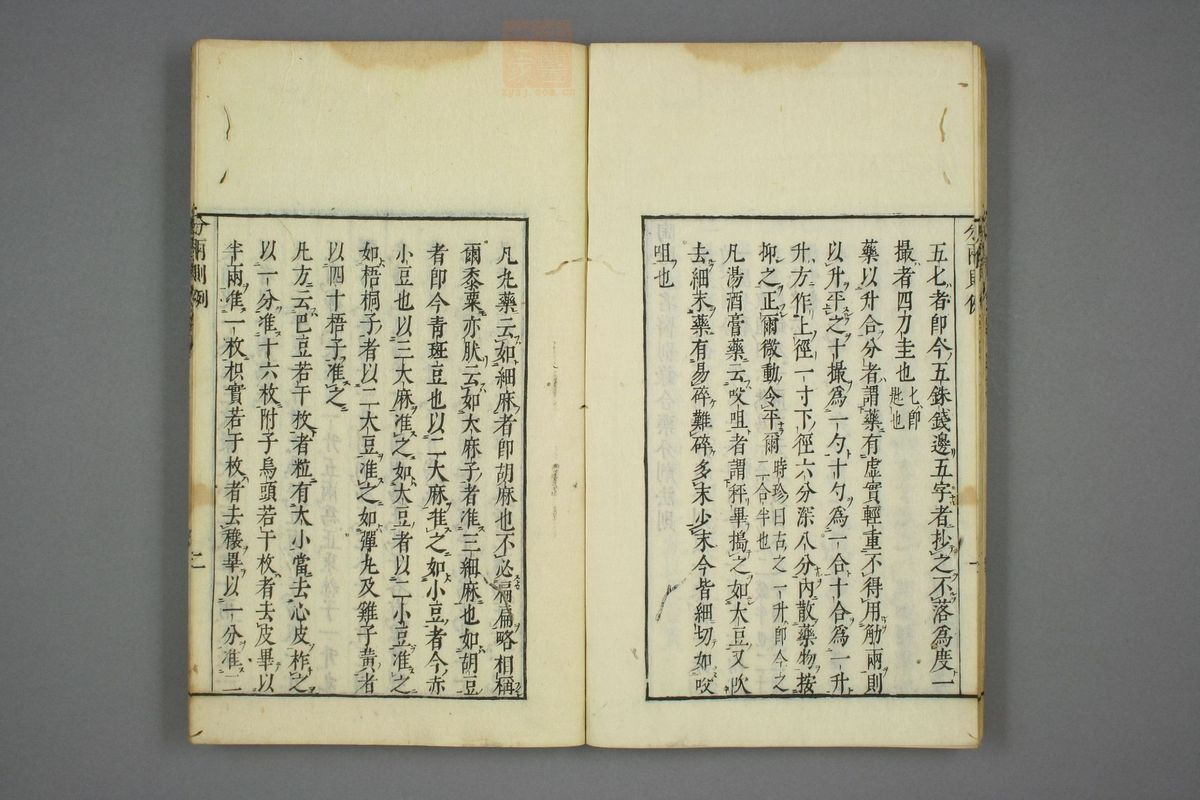 分兩則例
五匕者卽今五銖錢邊五字者抄之不落爲度一
撮者四刀圭也匕卽匙也
藥以升合分者謂藥有虛實輕重不得用觔兩則
以升平之十撮爲一勺十勺爲一合十合爲一升
升方作上徑一寸下徑六分深八分內散藥物按
抑之正爾微動令平爾時珍曰古之一升卽今之二合半也
凡湯酒膏藥云㕮咀者謂秤畢搗之如大豆又吹
去細末藥有易碎難碎多末少末今皆細切如㕮
咀也
凡丸藥云如細麻者卽胡麻也不必扁扁略相稱
爾黍粟亦肰云如大麻子者准三細麻也如胡豆
者卽今靑斑豆也以二大麻准之如小豆者今赤
小豆也以三大麻准之如大豆者以二小豆准之
如梧桐子者以二大豆准之如彈丸及雞子黃者
以四十梧子准之
凡方云巴豆若干枚者粒有大小當去心皮柞之
以一分准十六枚附子烏頭若干枚者去皮畢以
半兩准一枚枳實若干枚者去穰畢以一分准二
分兩則例
二
zysj.com.cn